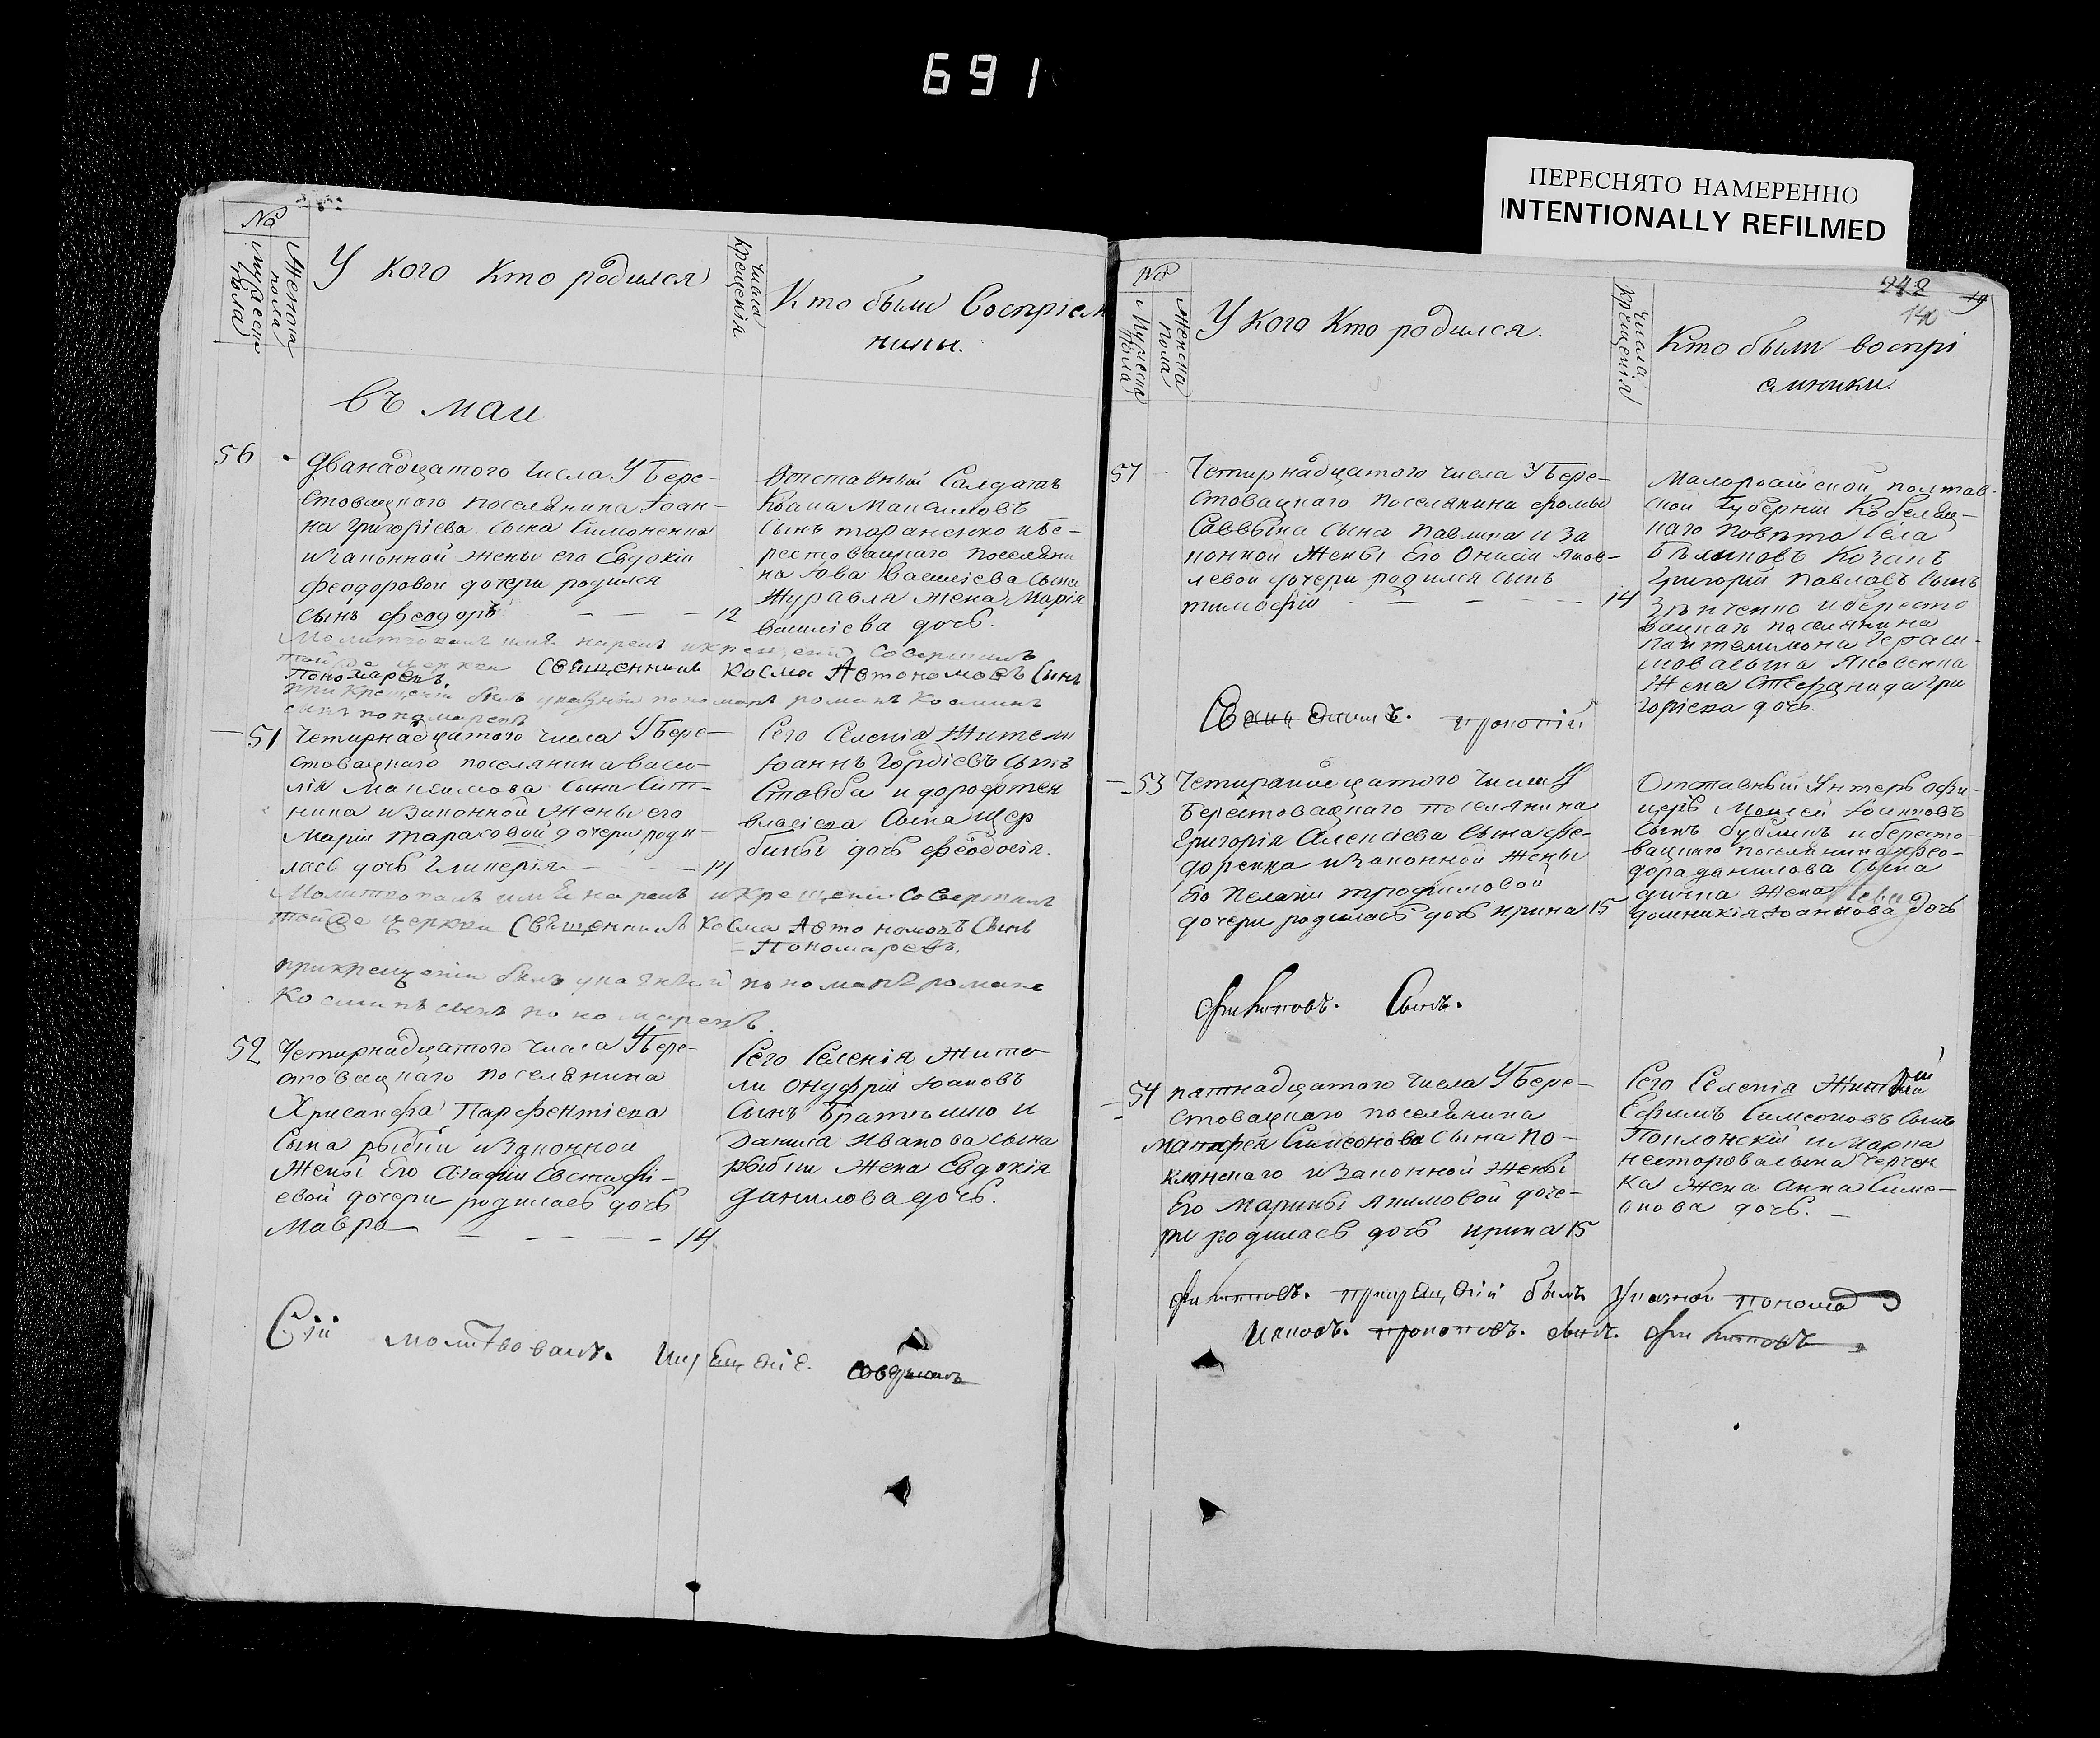 691
ПЕРЕСНЯТО НАМЕРЕННО
INTENTIONALLY REFILMED
№
Мужеска пола
Женска пола
У кого кто родился
числа крещенія
Кто были Воспріем
ники.
въ маи
56
Дванадцатого числа У Бере-
стовацкаго поселянина Іоан-
на Григоріева сына Симоненка
и законной жены его Евдокіи
Феодоровой дочери родился
сынъ Феодоръ
12
Отставный Салдатъ
сынъ тараненко и бе-
рестовацкаго поселяни
на Іова Василіева сына
Журавля жена Марія
Василіева дочь.
Молитвовалъ имя нарекъ и крещеніе Совершилъ
тойже церкви Священникъ Косма Автономовъ Сынъ
Пономаревъ.
при крещеніи былъ указный пономарь романъ Косминъ
сынъ пономаревъ
51
Четирнадцатого числа У Бере-
стовацкаго поселянина Васи-
лія Максимова сына Сит-
ника и законной жены его
Маріи Тарасовой дочери роди-
лась дочь Гликерія
14
Сего Селенія Жители
Іоаннъ Гордіевъ сынъ
Стовба и дорофтея
власіева сына щер
бины дочь феодосія.
Молитвовалъ имя нарекъ и крещеніе Совершилъ
тойже церкви Священникъ Косма Автономовъ Сынъ
Пономаревъ.
при крещеніи былъ указный пономарь романъ
Косминъ сынъ пономаревъ.
52
Четирнадцатого числа У Бере-
стовацкаго поселянина
Хрисанфа Парфентіева
сына рыбки и законной
жены Его Агафіи Евстафі-
евой дочери родилась дочь
Мавра
14
Сего Селенія жите
ли Онуфрій Іоановъ
сынъ Братышко и
Данила Иванова сына
рыбки жена Евдокія
данилова дочь.
Сіи молитвовалъ. и крещеніе. совершилъ
№
Мужеска пола
Женска пола
У кого кто родился.
числа крещенія
Кто были воспрі
емники.
57
Четирнадцатого числа У Бере-
стовацкаго поселянина фомы
Саввына сына Павлика и за
конной жены Его Онисіи Яков-
левой дочери родился сынъ
тимофій
14
Малоросійской полтав
ской Губерніи Кобеляц-
каго повѣта Села
Бѣликовъ Козакъ
Григорій Павловъ сынъ
Зѣнченко и бересто
вацкаго поселянина
Пантелимона Гераси-
мова сына Яковенка
Жена Стефанида Гри
горіева дочь.
Священникъ. прокопій
53
Четирнадцатого числа У
Берестовацкаго поселянина
Григорія Алексіева сына фе-
доренка и законной жены
Его Пелагіи трофимовой
дочери родилась дочь ирина
15
Отставный Унтеръ офи-
церъ Моисей Іоанновъ
сынъ бублыкъ и бересто-
вацкаго поселянина фео-
дора данилова сына
жена
домникія Іоаннова дочь
Филиповъ. Сынъ.
54
патнадцатого числа У Бере-
стовацкаго поселянина
Матфея Симеонова сына по-
клонскаго и законной жены
Его Марины Якимовой доче-
ри родилась дочь ирина
15
Сего Селенія Жителій
Ефимъ Симеоновъ сынъ
Поклонскій и Марка
несторова сына черчен
ка жена Анна Симе-
онова дочь.
Филиповъ. прикрещеній былъ Указной пономар
Иаковъ. прокоповъ. сынъ. Филиповъ